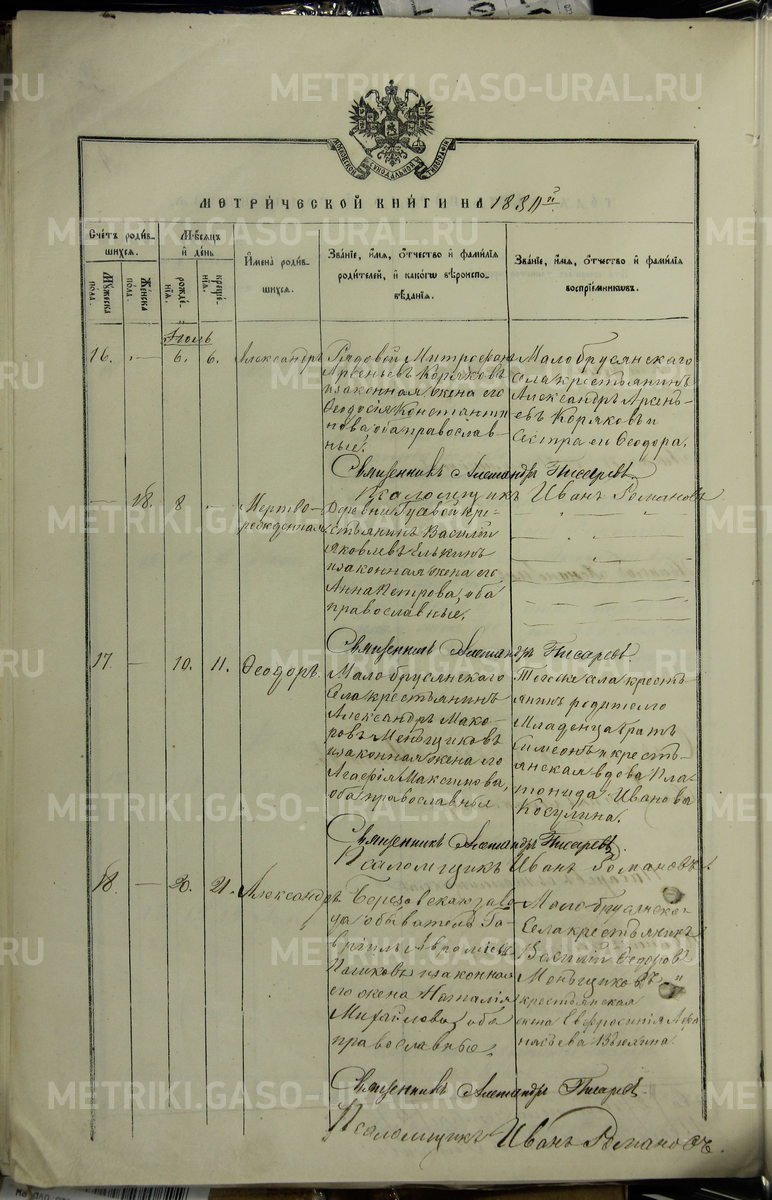 METRIKI.GASO-URAL.RU
МЕТРИ́ЧЕСКОЙ КНИ́ГИ НА
Счетъ роди́в-
шихся.
Мѣсяцъ
и день
И́мена роди́в-
шихся.
Зва́нїе, и́мя, ѻ́тчество и фами́лїя
роди́телей, и како́гѡ вѣроиспо-
вѣ́данїя.
Зва́нїе, и́мя, ѻ́тчество и фами́лїя
воспрїе́мниковъ.
Му́жеска
по́ла.
Же́нска
по́ла.
рожде-
нїя.
креще-
нїя.
Іюль
16. — 6. 6. Александръ
Рядовой Митрофанъ
Арсеньевъ Коряковъ
и законная жена его
Феодосія Константи
нова, оба православ-
ные.
Мало брусянскаго
села крестьянинъ
Александръ Арсень-
евъ Коряковъ и
сестра ею Феодора.
Священникъ Александръ Писаревъ.
Псаломщикъ Иванъ Романовъ
— 18. 8 —
Мертво-
рожденная
Деревни Гусевой кре-
стьянинъ Василій
Яковлевъ Елькинъ
и законная жена его
Анна Петрова, оба
православные.
Священникъ Александръ Писаревъ.
17. — 10. 11. Феодоръ.
Мало брусянскаго
села крестьянинъ
Александръ Мака-
ровъ Меньщиковъ
и законная жена его
Агафія Максимова,
оба православные
Того же села кресть
янинъ родителю
младенца братъ
Симеонъ и кресть-
янская вдова Пла-
тонида Иванова
Косулина.
Священникъ Александръ Писаревъ
Псаломщикъ Иванъ Романовъ.
18. — 20. 21. Александръ
Березовскаго заво
да обыватель Га-
вріилъ Авраміевъ
и законная
его жена Наталія
Михайлова, оба
православные.
Мало-брусянскаго
села крестьянинъ
Василій Феодоровъ
Меньщиковъ и
крестьянская
жена Евфросинія Афа
насьева
Священникъ Александръ Писаревъ
Псаломщикъ Иванъ Романовъ.